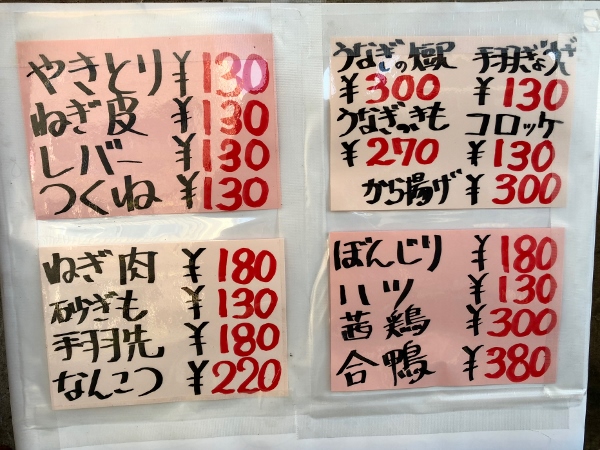 やきとり ¥130
ねぎ皮 ¥130
レバー ¥130
つくね ¥130
うなぎの燻 手羽ぎょうざ
¥300 ¥130
うなぎっきも コロッケ
¥270 ¥130
から揚げ ¥300
ねぎ肉 ¥180
砂ぎも ¥130
手羽先 ¥180
なんこつ ¥220
ぼんじり ¥180
ハツ ¥130
茜鶏 ¥300
合鴨 ¥380